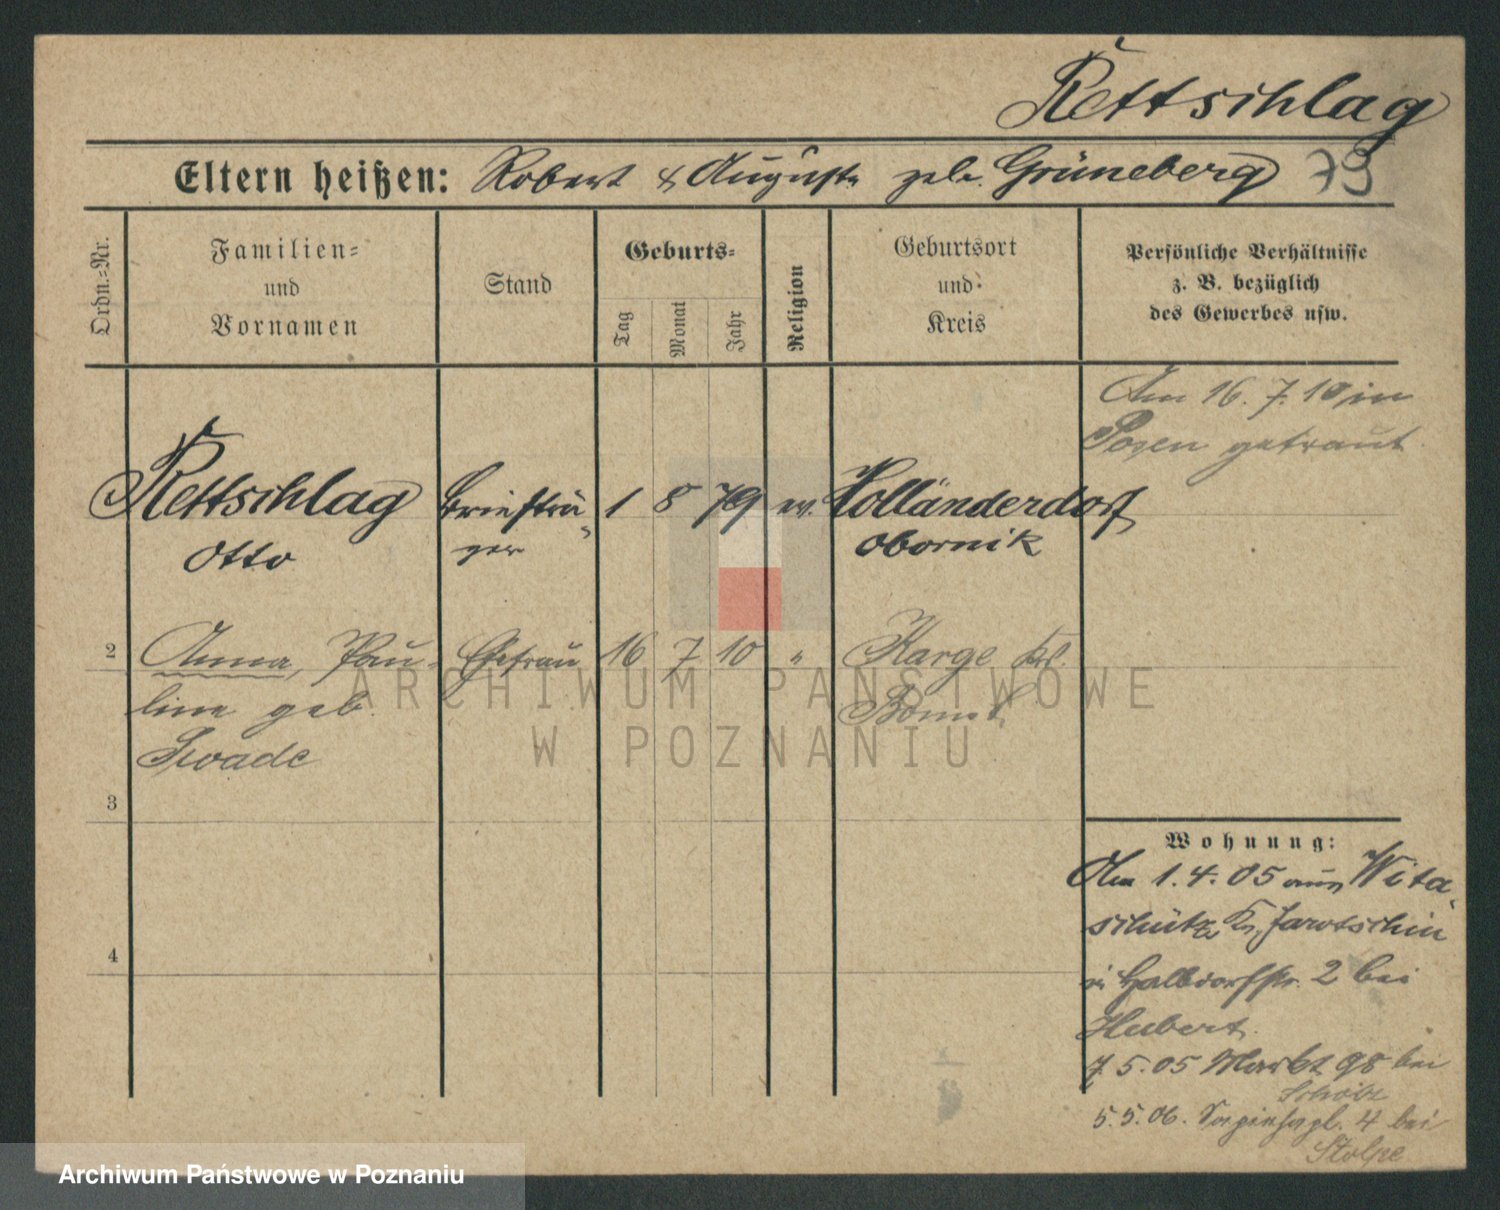 Rettschlag
Eltern heißen: Robert & Auguste geb. Grüneberg 79
Ordn.=Nr.
Familien=
und
Vornamen
Stand
Geburts=
Tag
Monat
Jahr
Religion
Geburtsort
und
Kreis
Persönliche Verhältnisse
z. B. bezüglich
des Gewerbes usw.
Am 16. 7. 10 in
Posen getraut
Rettschlag
Otto
Briefträ=
ger
1 8 79 ev.
Holländerdorf
Obornik
2
Anna, Pau=
line geb.
Swade
Ehefrau
16 7 10 "
Karge Krs.
Bomst
3
4
Wohnung:
Am 1. 4. 05 aus Wita=
schütz Kr. Jarotschin
n Halbdorfstr. 2 bei
Hubert.
7. 5. 05 Markt 98 bei
Scholz
5. 5. 06. 4 bei
Stolpe
ARCHIWUM PAŃSTWOWE
W POZNANIU
Archiwum Państwowe w Poznaniu